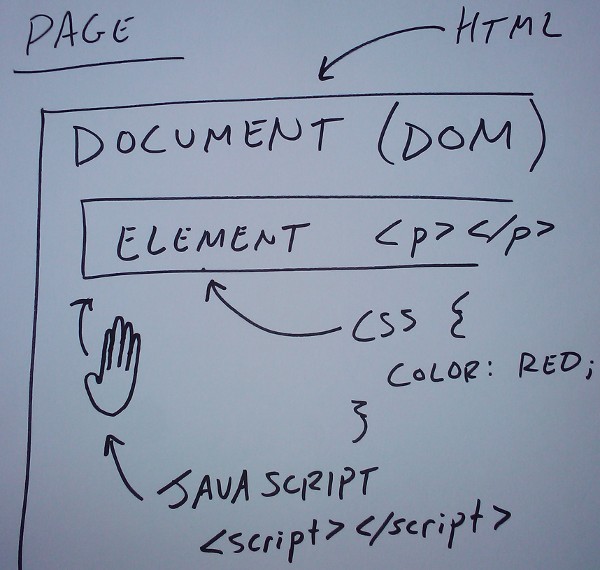 PAGE
HTML
DOCUMENT (DOM)
ELEMENT <p></p>
CSS {
COLOR: RED;
}
JAVASCRIPT
<script></script>